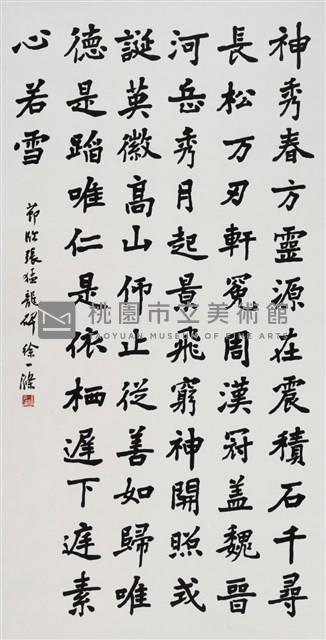 神秀春方靈源在震積石千尋
長松万刃軒冕周漢冠盖魏晉
河岳秀月起景飛窮神開照式
誕英徽高山仰止從善如歸唯
德是蹈唯仁是依栖遲下庭素
心若雪
節臨張猛龍碑 徐一
桃園市立美術館
TAOYUAN MUSEUM OF FINE ARTS